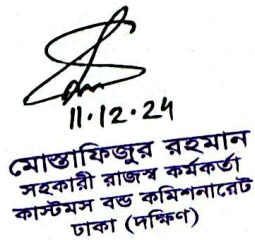 11.12.24
মোস্তাফিজুর রহমান
সহকারী রাজস্ব কর্মকর্তা
কাস্টমস বন্ড কমিশনারেট
ঢাকা (দক্ষিণ)